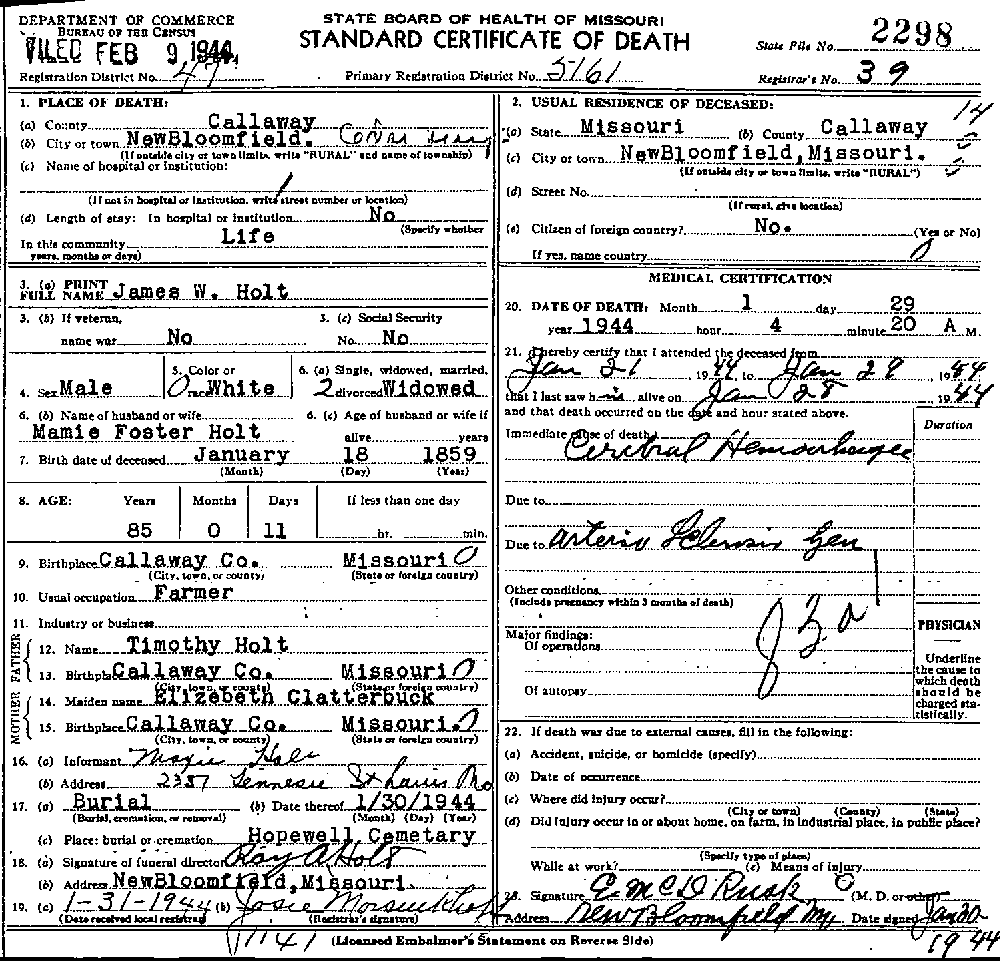 DEPARTMENT OF COMMERCE
BUREAU OF THE CENSUS
FILED FEB 9 1944
STATE BOARD OF HEALTH OF MISSOURI
STANDARD CERTIFICATE OF DEATH
State File No. 2298
Registration District No. 47
Primary Registration District No. 5161
Registrar's No. 39
1. PLACE OF DEATH:
(a) County Callaway
(b) City or town NewBloomfield.
(If outside city or town limits, write "RURAL" and name of township)
(c) Name of hospital or institution:
(If not in hospital or institution, write street number or location)
(d) Length of stay: In hospital or institution No
(Specify whether
In this community Life
years, months or days)
2. USUAL RESIDENCE OF DECEASED: 14
(a) State Missouri (b) County Callaway
(c) City or town NewBloomfield, Missouri.
(If outside city or town limits, write "RURAL")
(d) Street No.
(If rural, give location)
(e) Citizen of foreign country? No. (Yes or No)
If yes, name country 0
3. (a) PRINT FULL NAME James W. Holt
3. (b) If veteran, name war No
3. (c) Social Security No. No
4. Sex Male
5. Color or race White
6. (a) Single, widowed, married, divorced Widowed
6. (b) Name of husband or wife
Mamie Foster Holt
6. (c) Age of husband or wife if alive years
7. Birth date of deceased January 18 1859
(Month) (Day) (Year)
8. AGE: Years Months Days If less than one day
85 0 11 hr. min.
9. Birthplace Callaway Co. Missouri 0
(City, town, or county) (State or foreign country)
10. Usual occupation Farmer
11. Industry or business
FATHER
12. Name Timothy Holt
13. Birthplace Callaway Co. Missouri 0
(City, town, or county) (State or foreign country)
MOTHER
14. Maiden name Elizebeth Clatterbuck
15. Birthplace Callaway Co. Missouri. 0
(City, town, or county) (State or foreign country)
16. (a) Informant Holt
(b) Address 2357 Tennesee St Louis Mo
17. (a) Burial (b) Date thereof 1/30/1944
(Burial, cremation, or removal) (Month) (Day) (Year)
(c) Place: burial or cremation Hopewell Cemetary
18. (a) Signature of funeral director Ray A Holt
(b) Address NewBloomfield, Missouri.
19. (a) 1-31-1944 (b) Josie
(Date received local registrar) (Registrar's signature)
MEDICAL CERTIFICATION
20. DATE OF DEATH: Month 1 day 29
year 1944 hour 4 minute 20 A M.
21. I hereby certify that I attended the deceased from
Jan 21, 1944, to Jan 28, 1944
that I last saw him alive on Jan 28 1944
and that death occurred on the date and hour stated above.
Duration
Immediate cause of death Cerebral Hemorrhagee
Due to
Due to Arterio Sclerosis Gen
Other conditions
(Include pregnancy within 3 months of death)
Major findings:
Of operations
Of autopsy
PHYSICIAN
Underline the cause to which death should be charged statistically.
22. If death was due to external causes, fill in the following:
(a) Accident, suicide, or homicide (specify)
(b) Date of occurrence
(c) Where did injury occur?
(City or town) (County) (State)
(d) Did injury occur in or about home, on farm, in industrial place, in public place?
(Specify type of place)
While at work? (e) Means of injury
23. Signature E McD Rusk (M. D. or other)
Address New Bloomfield Mo Date signed Jan 30 1944
(Licensed Embalmer's Statement on Reverse Side)